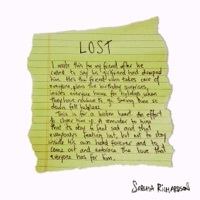 LOST
I wrote this for my friend after he
called to say his girlfriend had dumped
him. He's the friend who takes care of
everyone, plans the birthday surprises,
invites everyone home for holidays when
they have nowhere to go. Seeing him so
down felt helpless.
This is for a broken heart. An effort
to cheer him up. A reminder to him
that its okay to feel sad and that
everybody's feeling lost, but not to stay
inside his own head forever and to
come out and embrace the love that
everyone has for him.
SABRINA RICHARDSON